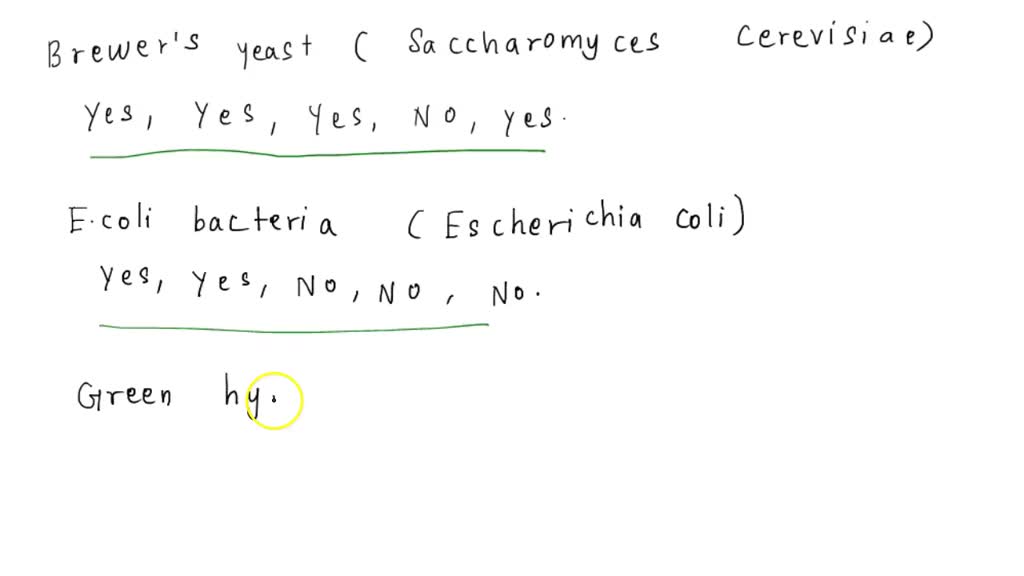 Brewer's yeast ( Saccharomyces cerevisiae)
Yes, Yes, Yes, NO, yes.
E.coli bacteria (Escherichia coli)
Yes, Yes, NO, NO, No.
Green hy.